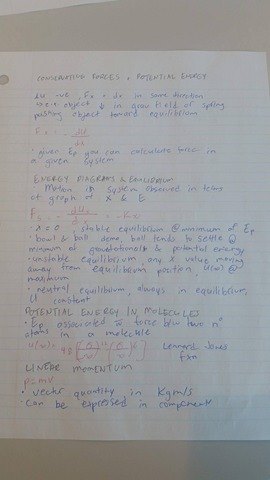 CONSERVATIVE FORCES & POTENTIAL ENERGY
du -ve, Fx + dx in same direction
object ↓ in grav field or spring
pushing object toward equilibrium
Fx = - du/dx
• given Ep you can calculate force in
a given system
ENERGY DIAGRAMS & EQUILIBRIUM
Motion in system observed in terms
of graph of x & E
Fx = - dUs/dx = -kx
• x = 0, stable equilibrium @ minimum of Ep
• bowl & ball demo, ball tends to settle @
minimum of gravitational potential energy
• unstable equilibrium, any x value moving
away from equilibrium position, U(x) @
maximum
• neutral equilibrium, always in equilibrium,
U constant
POTENTIAL ENERGY IN MOLECULES
• Ep associated w force b/w two n°
atoms in a molecule
u(x) = 4ε[(σ/r)^12 - (σ/r)^6] Lennard Jones
fxn
LINEAR MOMENTUM
p = mv
• vector quantity in Kgm/s
• Can be expressed in components